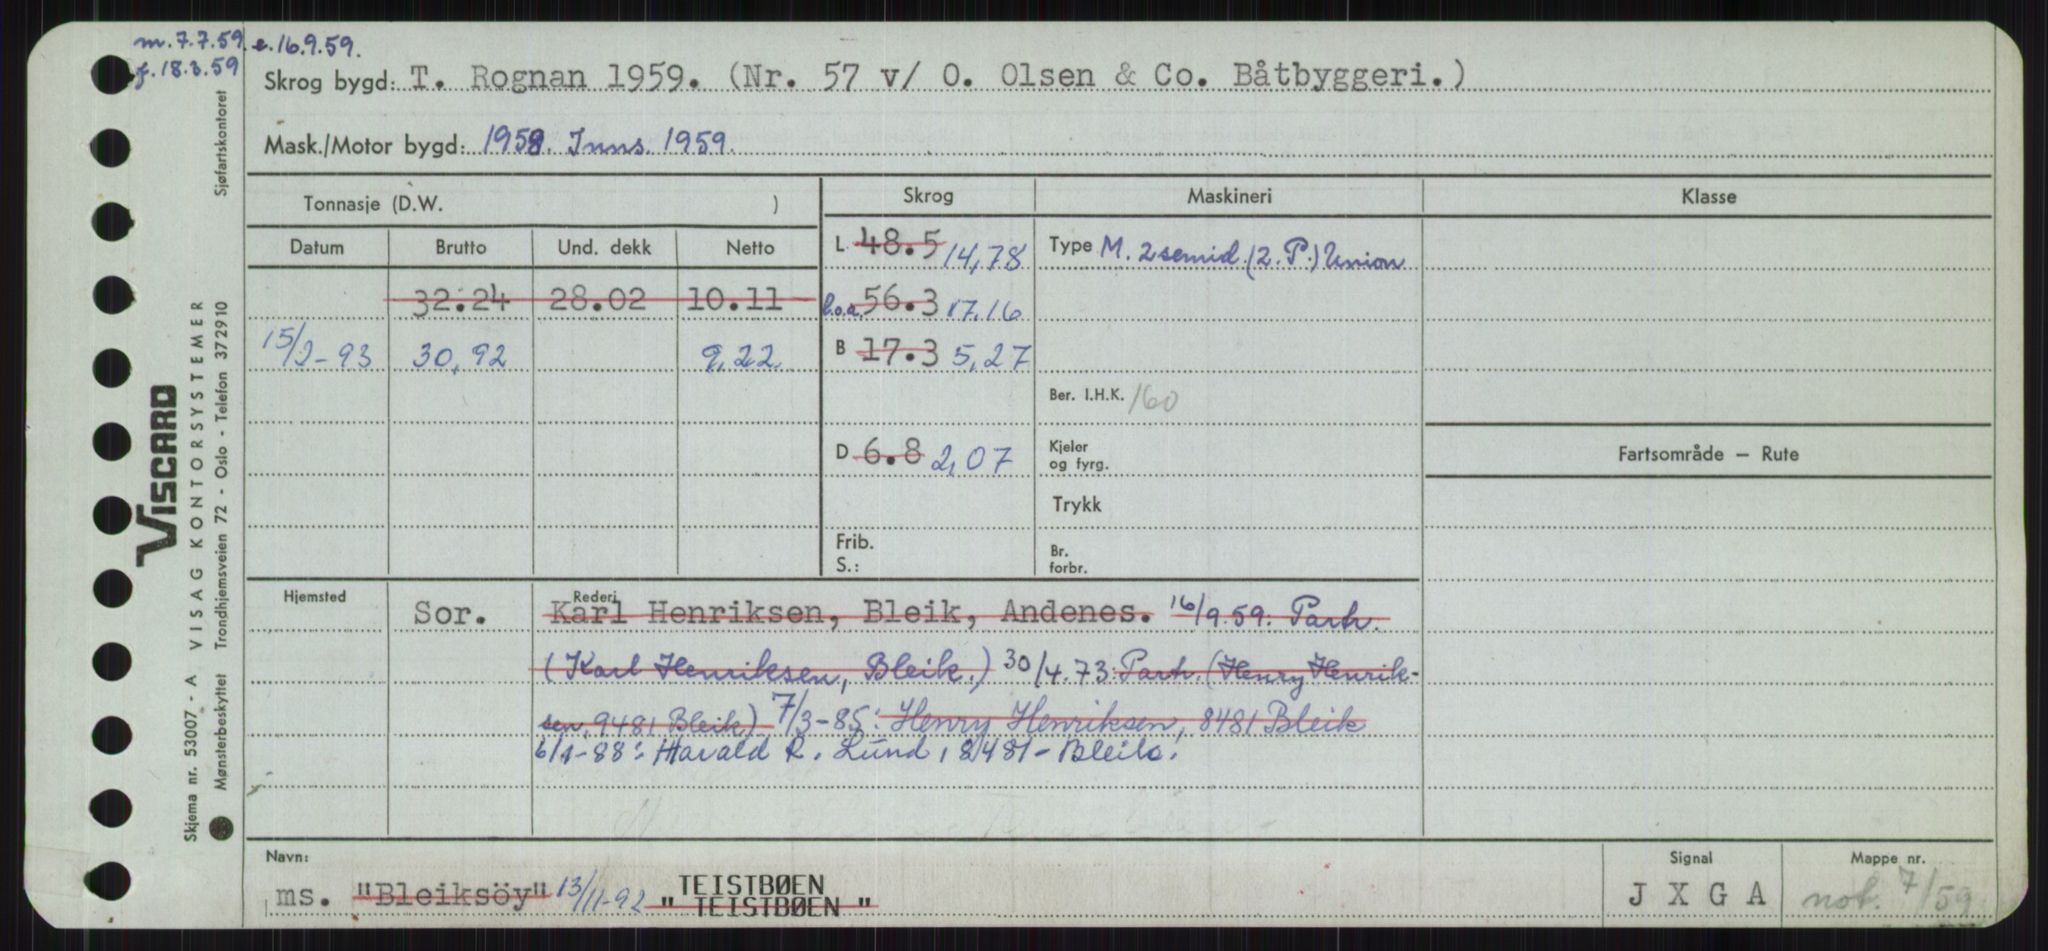 m. 7.7.59. e. 16.9.59.
f. 18.3.59
Skrog bygd: T. Rognan 1959. (Nr. 57 v/ O. Olsen & Co. Båtbyggeri.)
Mask./Motor bygd: 1958. Inns. 1959.
Tonnasje (D.W. ) Skrog Maskineri Klasse
Datum Brutto Und. dekk Netto
L 48.5 14,78 Type M. 2 semid. (2. P.) Union
32.24 28.02 10.11 l.o.a. 56.3 17.16
15/2-93 30,92 9,22 B 17.3 5,27
Ber. I.H.K. 160
D 6.8 2,07 Kjeler
og fyrg.
Fartsområde — Rute
Trykk
Frib.
S.:
Br.
forbr.
Hjemsted Rederi
Sor. Karl Henriksen, Bleik, Andenes. 16/9.59. Parh.
(Karl Henriksen, Bleik.) 30/4.73: Parh. (Henry Henrik-
sen, 9481 Bleik) 7/3-85: Henry Henriksen, 8481 Bleik
6/1-88: Harald R. Lund, 8481 - Bleik.
Navn: Signal Mappe nr.
ms. "Bleiksöy" 13/11-92 TEISTBØEN
" TEISTBØEN "
J X G A not. 7/59
VISCARD
VISAG KONTORSYSTEMER
Skjema nr. 53007 - A
Mønsterbeskyttet Trondhjemsveien 72 - Oslo - Telefon 372910 Sjøfartskontoret